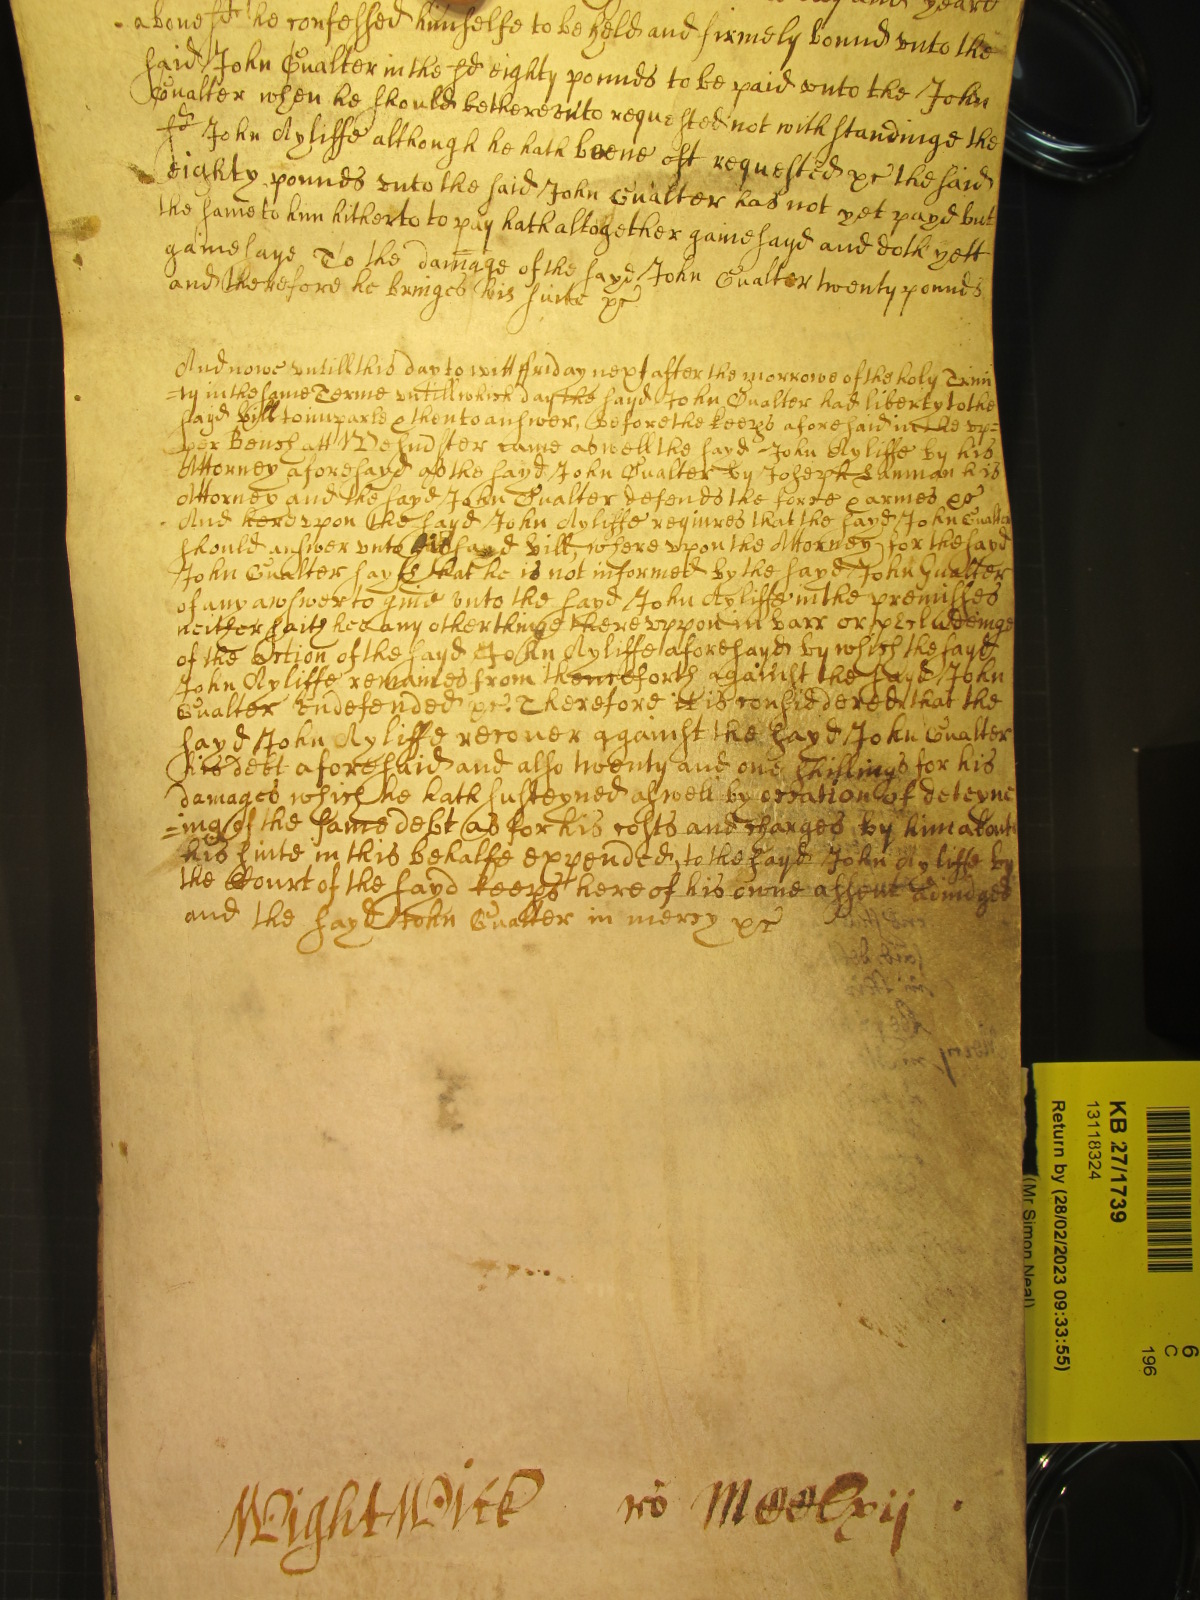 yeare
aboue sd he confessed himselfe to be held and firmely bound vnto the
said John Gualter in the sd eighty pounds to be paid vnto the John
Gualter when he should bethereunto requested not with standinge the
sd John Ayliffe although he hath beene oft requested &c the said
eighty pounds vnto the said John Gualter has not yet payd but
the same to him hitherto to pay hath altogether gainesayd and doth yett
gainesaye To the damage of the sayd John Gualter twenty pounds
and therefore he bringes his suite &c
And nowe vntill this day to witt ffriday next after the morrowe of the holy Trini
=ty in the same Terme vntill which day the sayd John Gualter had liberty to the
sayd Bill to imparle & then to answer, before the keeps aforesaid in the vp=
per Bench att Westmster came as well the sayd John Ayliffe by his
Attorney aforesayd as the sayd John Gualter by Joseph Lanman his
Attorney and the sayd John Gualter defends the force & armes &c
And herevpon the sayd John Ayliffe requires that the sayd John Gualter
should answer vnto his sayd bill, where vpon the Attorney for the sayd
John Gualter sayth that he is not informed by the sayd John Gualter
of any answer to giue vnto the sayd John Ayliffe in the premisses
neither saith hee any other thinge there vppon in barr or precludeinge
of the Action of the sayd John Ayliffe aforesayd by which the sayd
John Ayliffe remaines from thenceforth against the sayd John
Gualter Vndefended &c Therefore it is considdered that the
sayd John Ayliffe recouer against the sayd John Gualter
his debt aforesaid and also twenty and one shillings for his
damages which he hath susteyned aswell by occation of deteyne
=ing of the same debt as for his costs and charges by him about
his suite in this behalfe expended to the sayd John Ayliffe by
the Court of the sayd keeps here of his owne assent Adiudged
and the sayd John Gualter in mercy &c
WightWick ro MCClxii
KB 27/1739
13118324
Return by (28/02/2023 09:33:55)
(Mr Simon Neal)
6
C
196